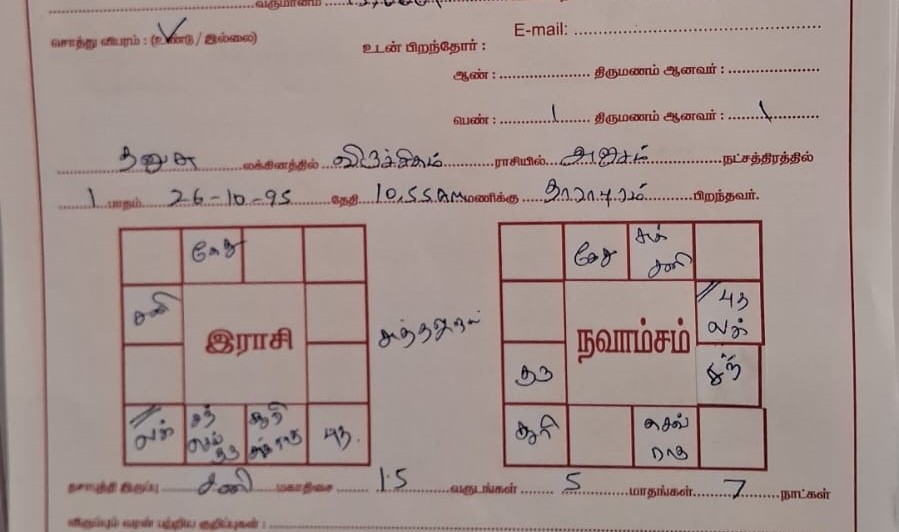 வருமானம்
சொத்து விபரம் : (உண்டு / இல்லை)
E-mail:
உடன் பிறந்தோர் :
ஆண் : திருமணம் ஆனவர் :
பெண் : 1 திருமணம் ஆனவர் : 1
தனுசு லக்கினத்தில் விருச்சிகம் ராசியில் அனுசம் நட்சத்திரத்தில்
1 பாதம் 26-10-95 தேதி 10.55 AM மணிக்கு தாராபுரம் பிறந்தவர்.
கேது
சனி
இராசி
லக்
சந் செவ் குரு
சூரி சுக் ராகு
புத
கேது
சுக் சனி
புத லக்
நவாம்சம்
குரு
சந்
சூரி
செவ் ராகு
தசாபுத்தி இருப்பு சனி மகாதிசை 15 வருடங்கள் 5 மாதங்கள் 7 நாட்கள்
விரும்பும் வரன் பற்றிய குறிப்புகள் :